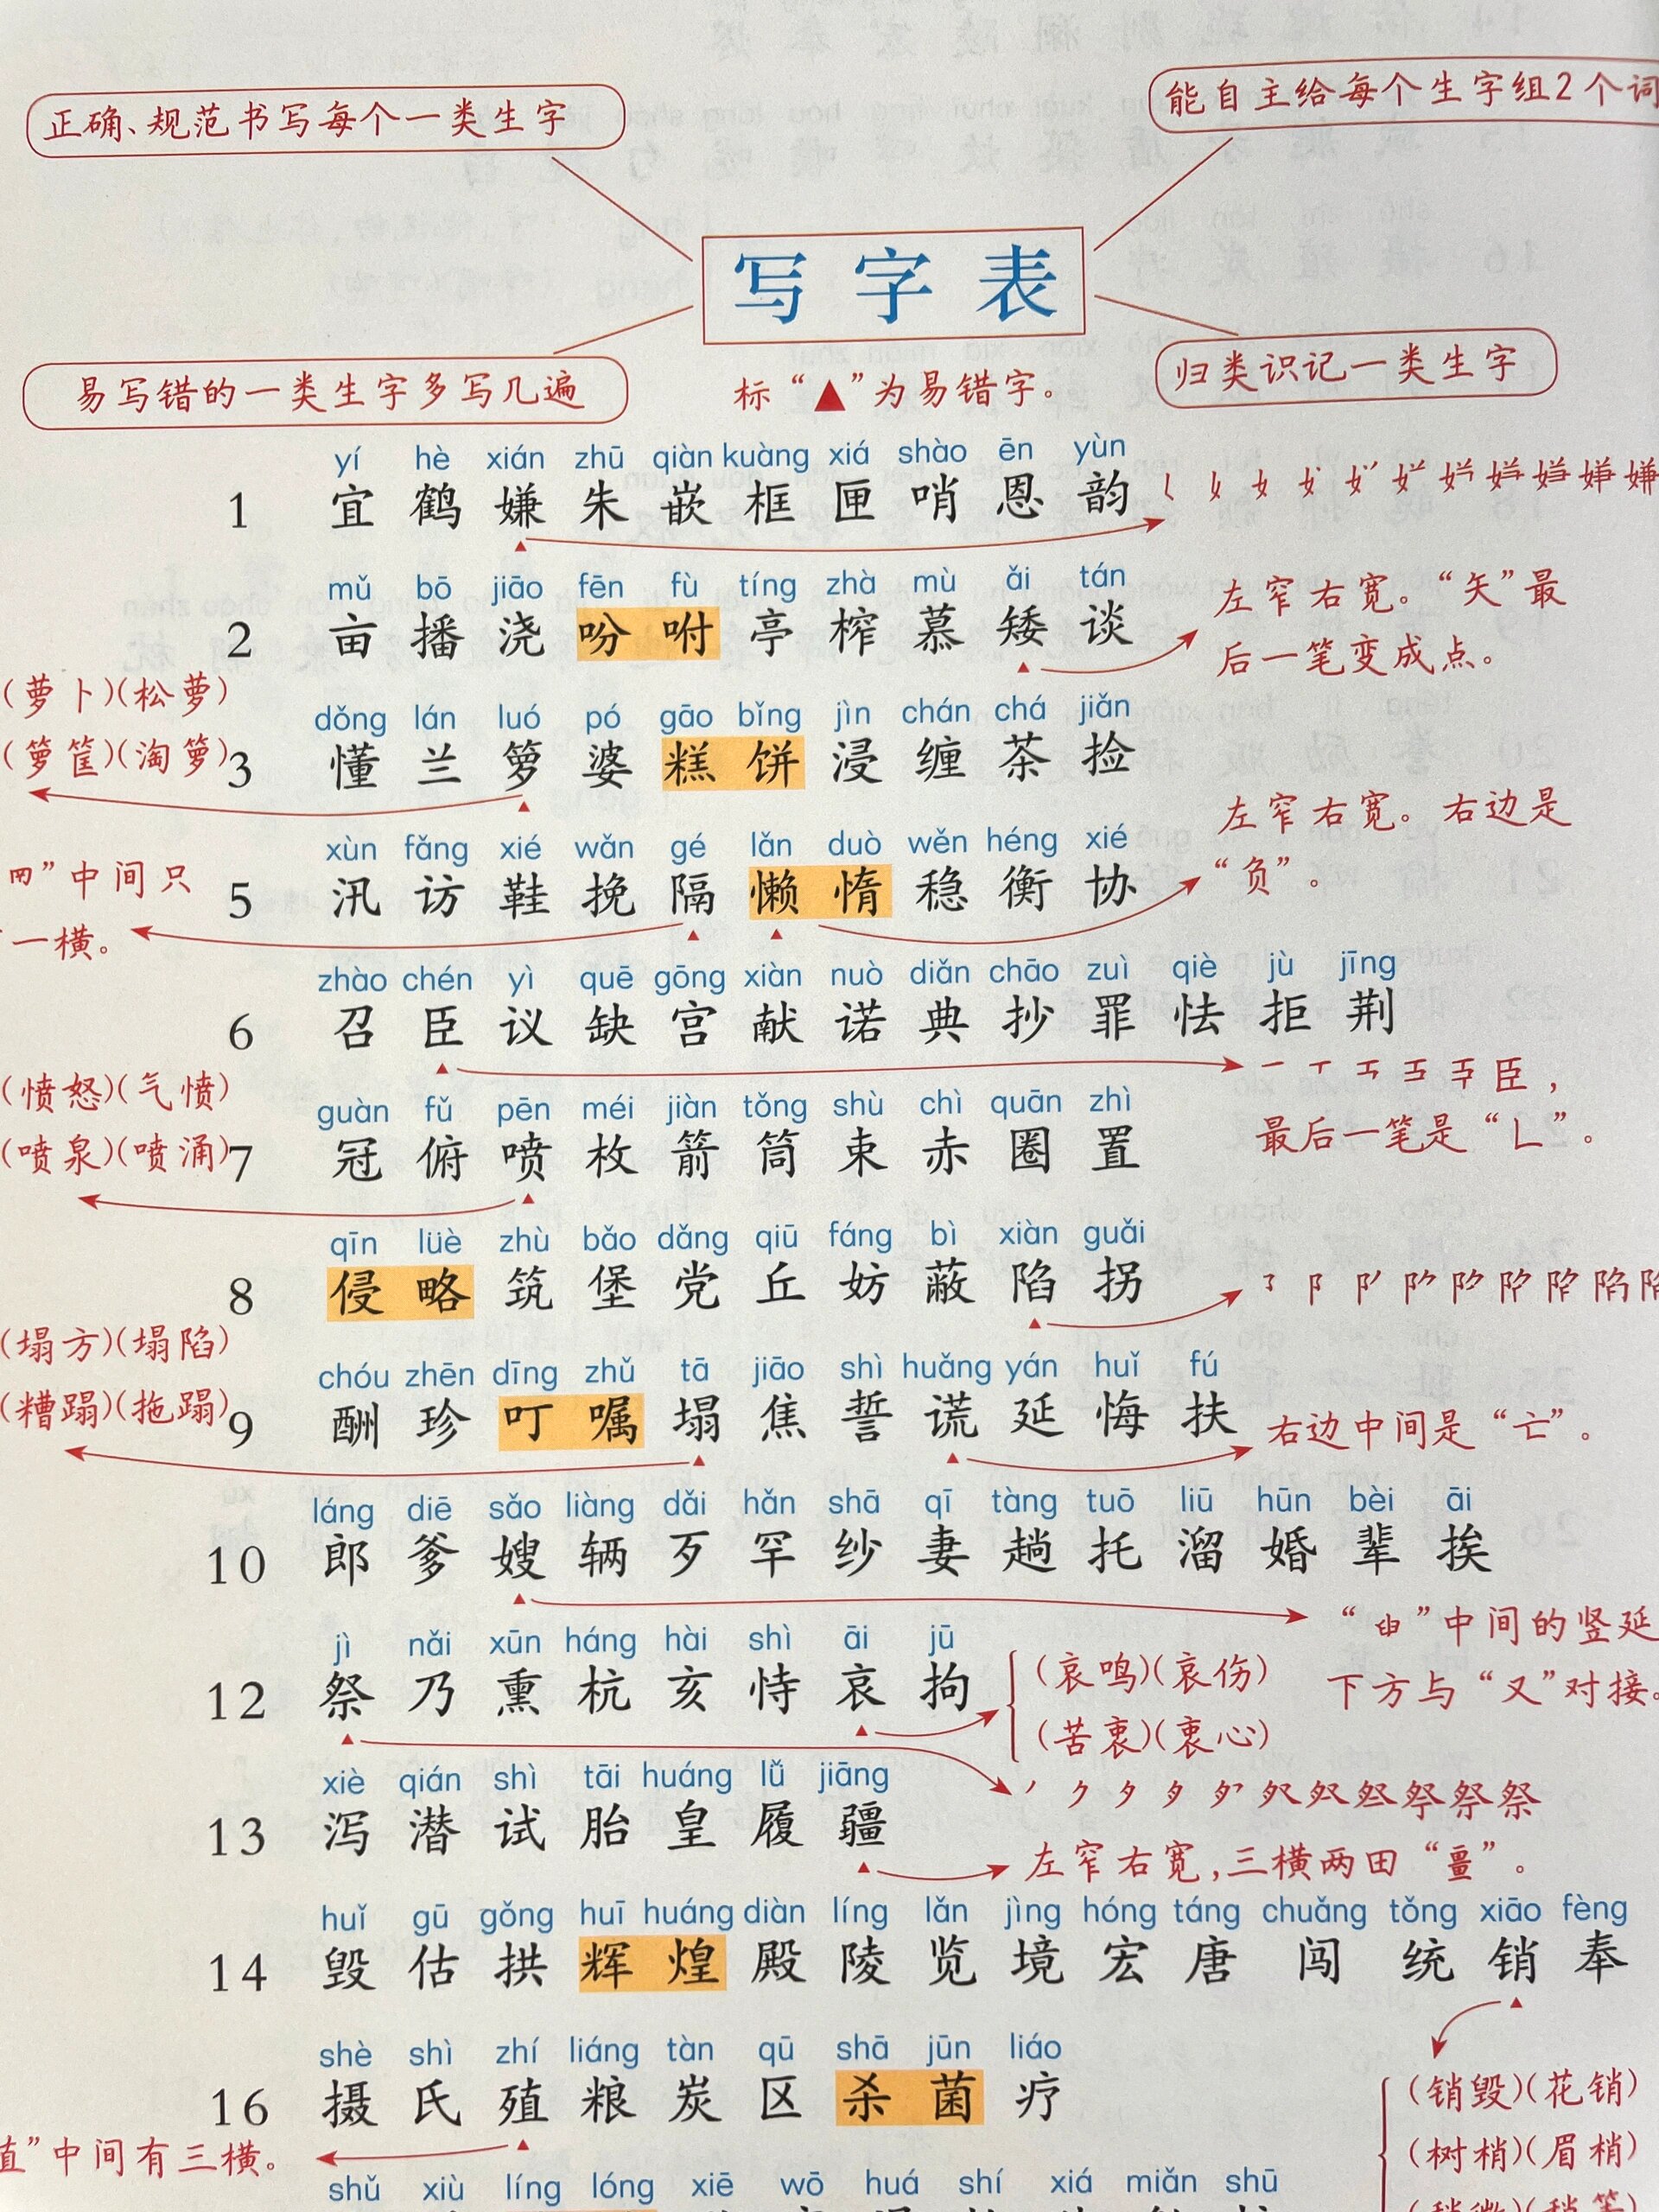 正确、规范书写每个一类生字
能自主给每个生字组2个词
写字表
易写错的一类生字多写几遍
标“▲”为易错字。
归类识记一类生字
yí hè xián zhū qiàn kuàng xiá shào ēn yùn
1 宜 鹤 嫌 朱 嵌 框 匣 哨 恩 韵
mǔ bō jiāo fēn fù tíng zhà mù ǎi tán
2 亩 播 浇 吩 咐 亭 榨 慕 矮 谈
左窄右宽。“矢”最
后一笔变成点。
(萝卜)(松萝)
(箩筐)(淘箩)
dǒng lán luó pó gāo bǐng jìn chán chá jiǎn
3 懂 兰 箩 婆 糕 饼 浸 缠 茶 捡
左窄右宽。右边是
“负”。
”中间只
一横。
xùn fǎng xié wǎn gé lǎn duò wěn héng xié
5 汛 访 鞋 挽 隔 懒 惰 稳 衡 协
zhào chén yì quē gōng xiàn nuò diǎn chāo zuì qiè jù jīng
6 召 臣 议 缺 宫 献 诺 典 抄 罪 怯 拒 荆
臣，
最后一笔是“𠃊”。
(愤怒)(气愤)
(喷泉)(喷涌)
guàn fǔ pēn méi jiàn tǒng shù chì quān zhì
7 冠 俯 喷 枚 箭 筒 束 赤 圈 置
qīn lüè zhù bǎo dǎng qiū fáng bì xiàn guǎi
8 侵 略 筑 堡 党 丘 妨 蔽 陷 拐
(塌方)(塌陷)
(糟蹋)(拖蹋)
chóu zhēn dīng zhǔ tā jiāo shì huǎng yán huǐ fú
9 酬 珍 叮 嘱 塌 焦 誓 谎 延 悔 扶
右边中间是“亡”。
láng diē sǎo liàng dǎi hǎn shā qī tàng tuō liū hūn bèi āi
10 郎 爹 嫂 辆 歹 罕 纱 妻 趟 托 溜 婚 辈 挨
”中间的竖延
下方与“又”对接。
jì nǎi xūn háng hài shì āi jū
12 祭 乃 熏 杭 亥 恃 哀 拘
(哀鸣)(哀伤)
(苦衷)(衷心)
祭
xiè qián shì tāi huáng lǚ jiāng
13 泻 潜 试 胎 皇 履 疆
左窄右宽，三横两田“畺”。
huǐ gū gǒng huī huáng diàn líng lǎn jìng hóng táng chuǎng tǒng xiāo fèng
14 毁 估 拱 辉 煌 殿 陵 览 境 宏 唐 闯 统 销 奉
(销毁)(花销)
(树梢)(眉梢)
shè shì zhí liáng tàn qū shā jūn liáo
16 摄 氏 殖 粮 炭 区 杀 菌 疗
直”中间有三横。
shǔ xiù líng lóng xiē wō huá shí xiá miǎn shū